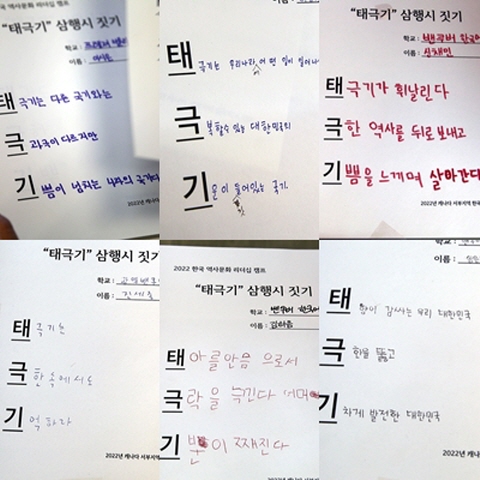 국 역사문화 리더십 캠프
“태극기” 삼행시 짓기
학교 :
이름 :
태 극기는 다른 국기와는
극 과 극이 다르지만
기 쁨이 넘치는 나라의 국기다
2022년 캐나다
태 극기는 우리나라 어떤 일이 일어나
극 복할수 있는 대한민국의
기 운이 들어있는 국기.
2022년
“태극기” 삼행시 짓기
학교 : 밴쿠버 한국어
이름 : 신채민
태 극기가 휘날린다
극 한 역사를 뒤로 보내고
기 쁨을 느끼며 살아간다
2022년 캐나다 서부지역 한국
“태극기” 삼행시 짓기
학교 :
이름 :
태 극기는
극 한 속에서도
기 억하라
2022년 캐나다 서부지역
2022 한국 역사문화 리더십 캠프
“태극기” 삼행시 짓기
학교 : 밴쿠버 한국어
이름 : 김하음
태 아를안음 으로서
극 락을 느낀다
기 분이 째진다
이름 :
태 감사는 우리 대한민국
극 한을 뚫고
기 차게 발전한 대한민국
2022년 캐나다 서부